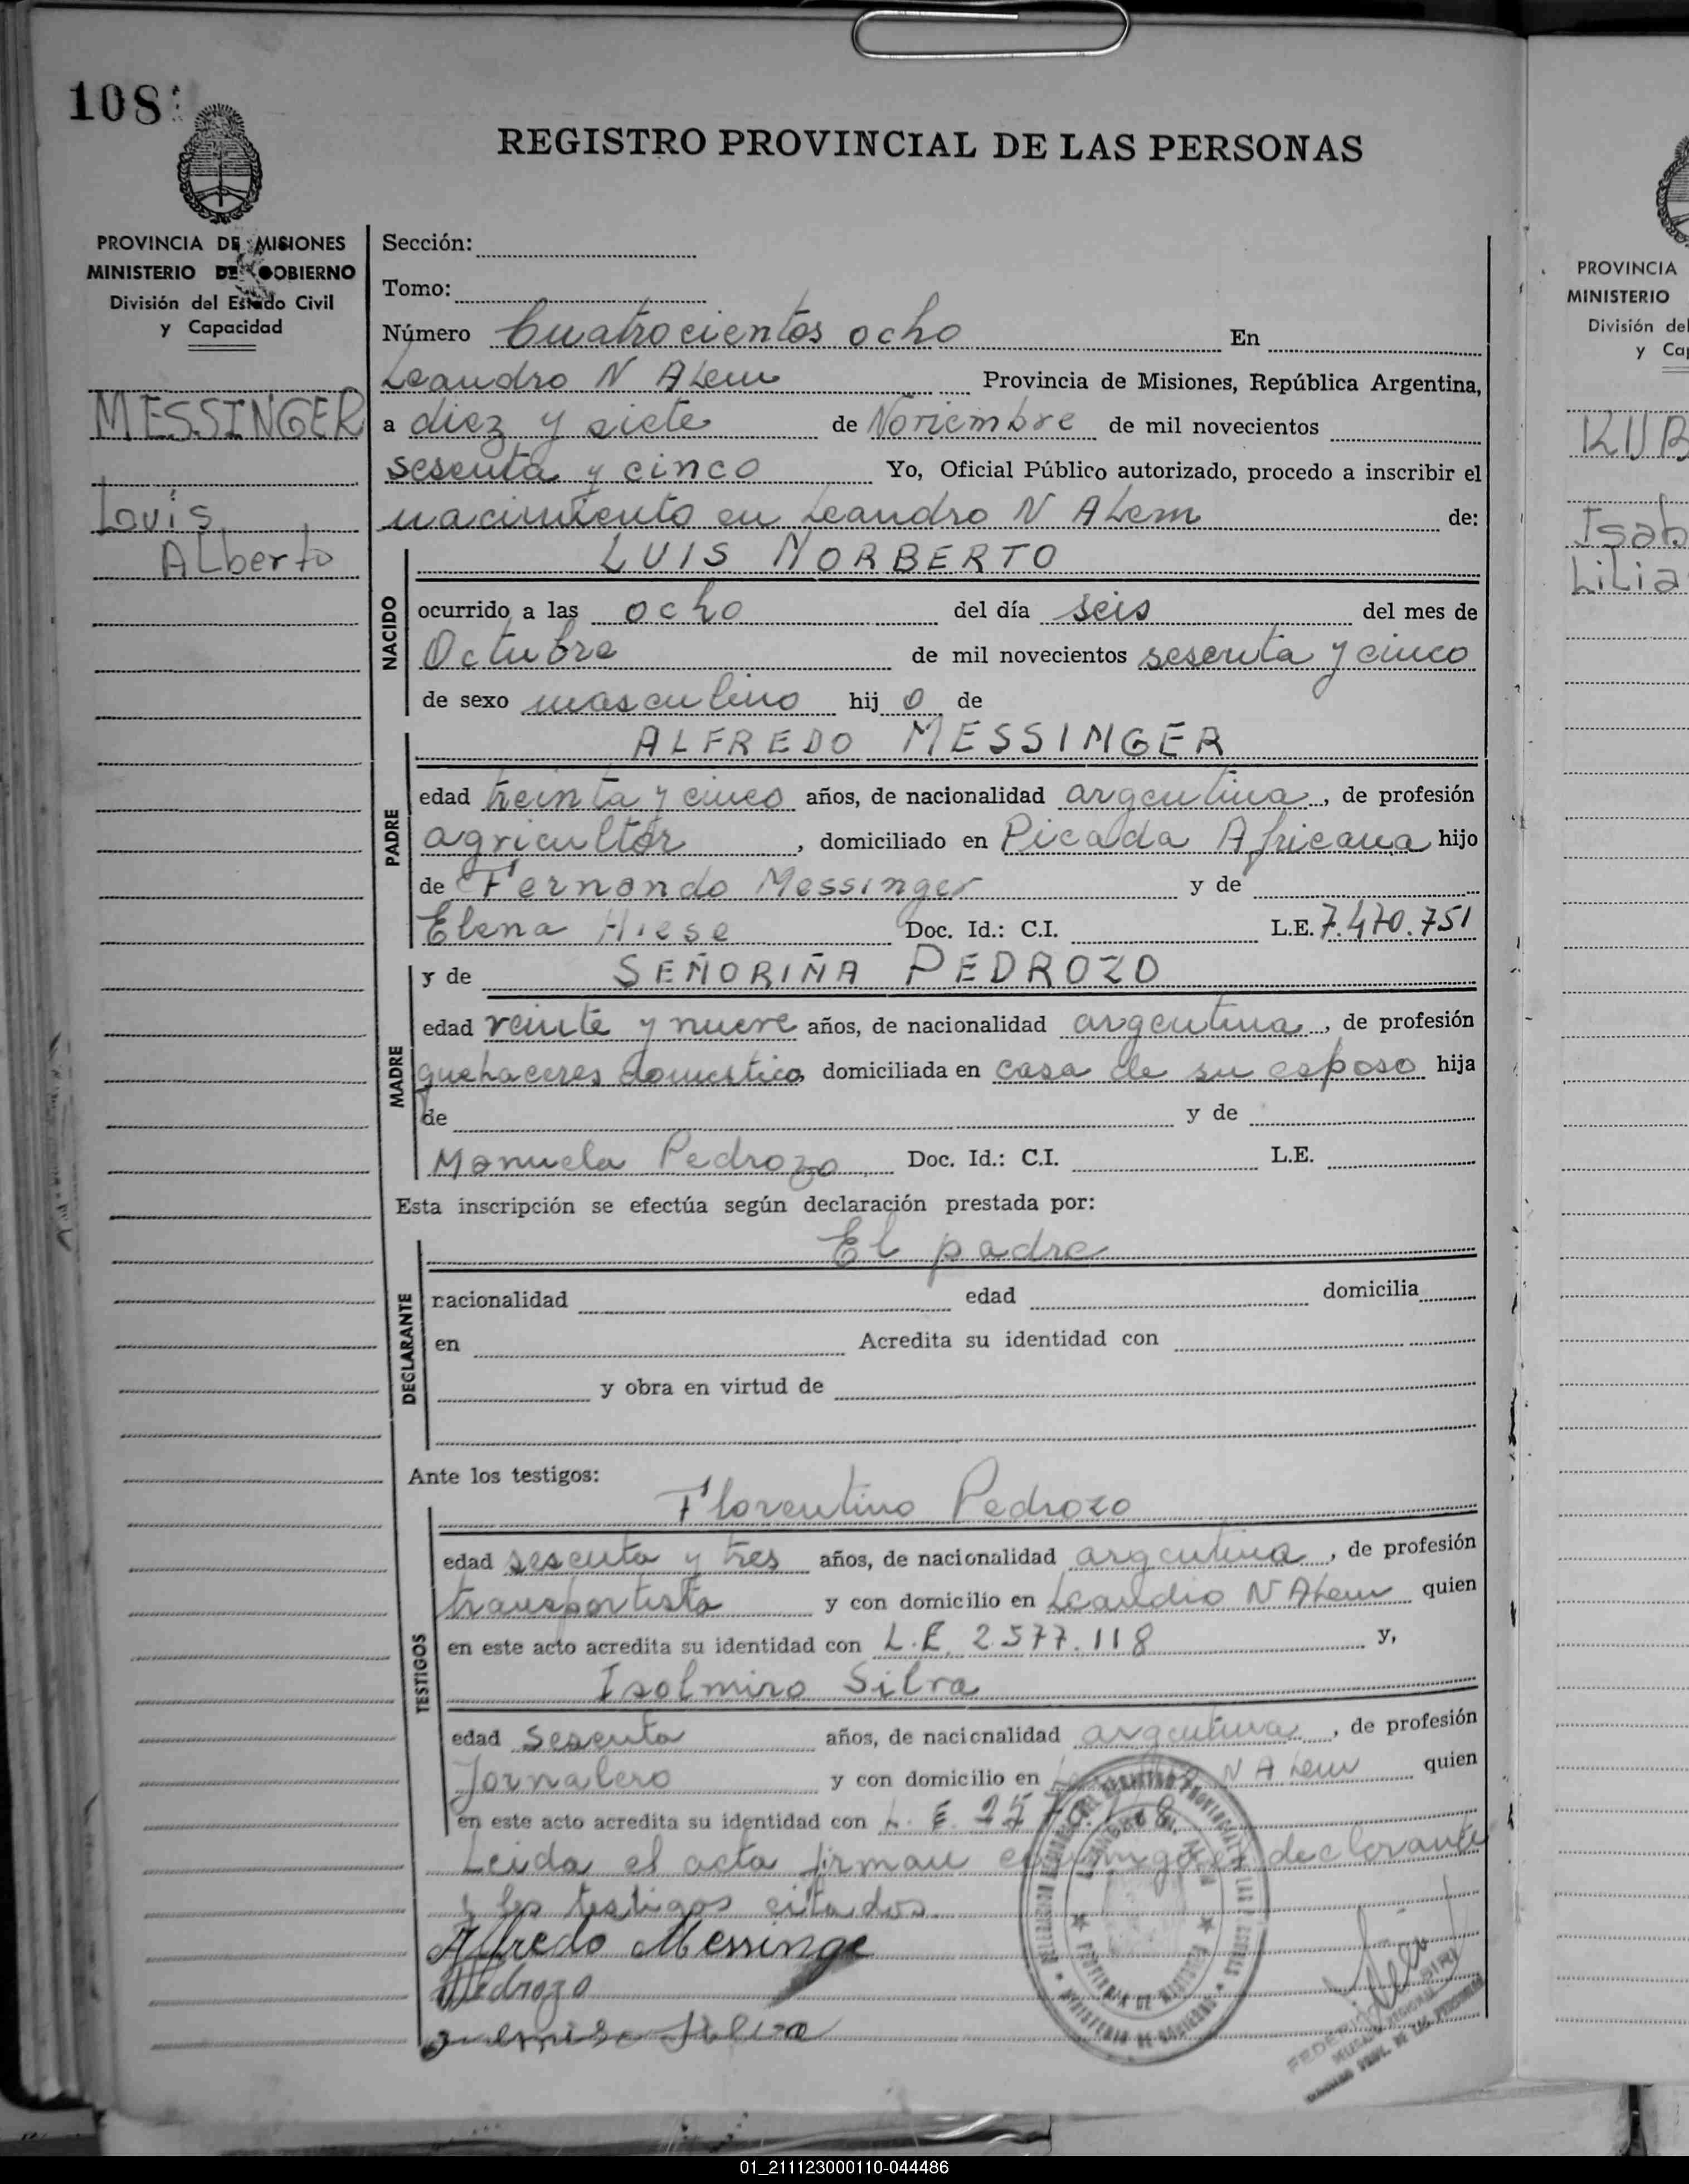 108
REGISTRO PROVINCIAL DE LAS PERSONAS
PROVINCIA DE MISIONES
MINISTERIO DE GOBIERNO
División del Estado Civil
y Capacidad
MESSINGER
Louis
Alberto
Sección:
Tomo:
Número Cuatrocientos ocho En
Leandro N Alem Provincia de Misiones, República Argentina,
a diez y siete de Noviembre de mil novecientos
sesenta y cinco Yo, Oficial Público autorizado, procedo a inscribir el
nacimiento en Leandro N Alem de:
NACIDO
LUIS NORBERTO
ocurrido a las ocho del día seis del mes de
Octubre de mil novecientos sesenta y cinco
de sexo masculino hij o de
PADRE
ALFREDO MESSINGER
edad treinta y cinco años, de nacionalidad argentina, de profesión
agricultor, domiciliado en Picada Africana hijo
de Fernando Messinger y de
Elena Hiese Doc. Id.: C.I. L.E. 7.470.751
MADRE
y de SEÑORIÑA PEDROZO
edad veinte y nueve años, de nacionalidad argentina, de profesión
quehaceres domestico, domiciliada en casa de su esposo hija
de y de
Manuela Pedrozo Doc. Id.: C.I. L.E.
Esta inscripción se efectúa según declaración prestada por:
DECLARANTE
El padre
nacionalidad edad domicilia
en Acredita su identidad con
y obra en virtud de
Ante los testigos:
TESTIGOS
Florentino Pedrozo
edad sesenta y tres años, de nacionalidad argentina, de profesión
transportista y con domicilio en Leandro N Alem quien
en este acto acredita su identidad con L.E. 2.577.118 y,
Isolmiro Silva
edad Sesenta años, de nacionalidad argentina, de profesión
Jornalero y con domicilio en N Alem quien
en este acto acredita su identidad con L. E.
Leida el acta firman declarante
y los testigos citados
Alfredo Messinge
Pedrozo
Silva
PROVINCIA DE MISIONES
MINISTERIO DE GOBIERNO
PROVINCIA
MINISTERIO
División del
y Cap
KUB
Isab
Lilia
01_211123000110-044486